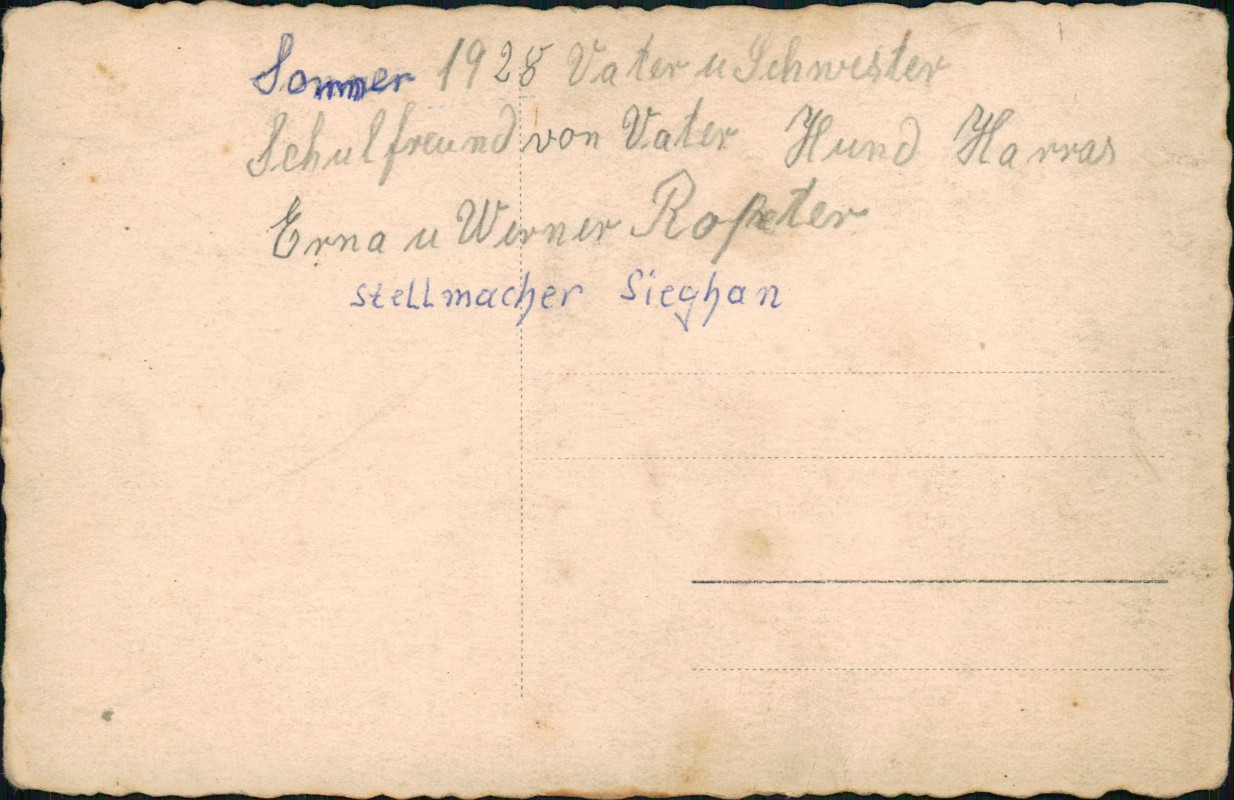 Sommer 1928 Vater u Schwester
Schulfreund von Vater Hund Harras
Erna u Werner
stellmacher Sieghan